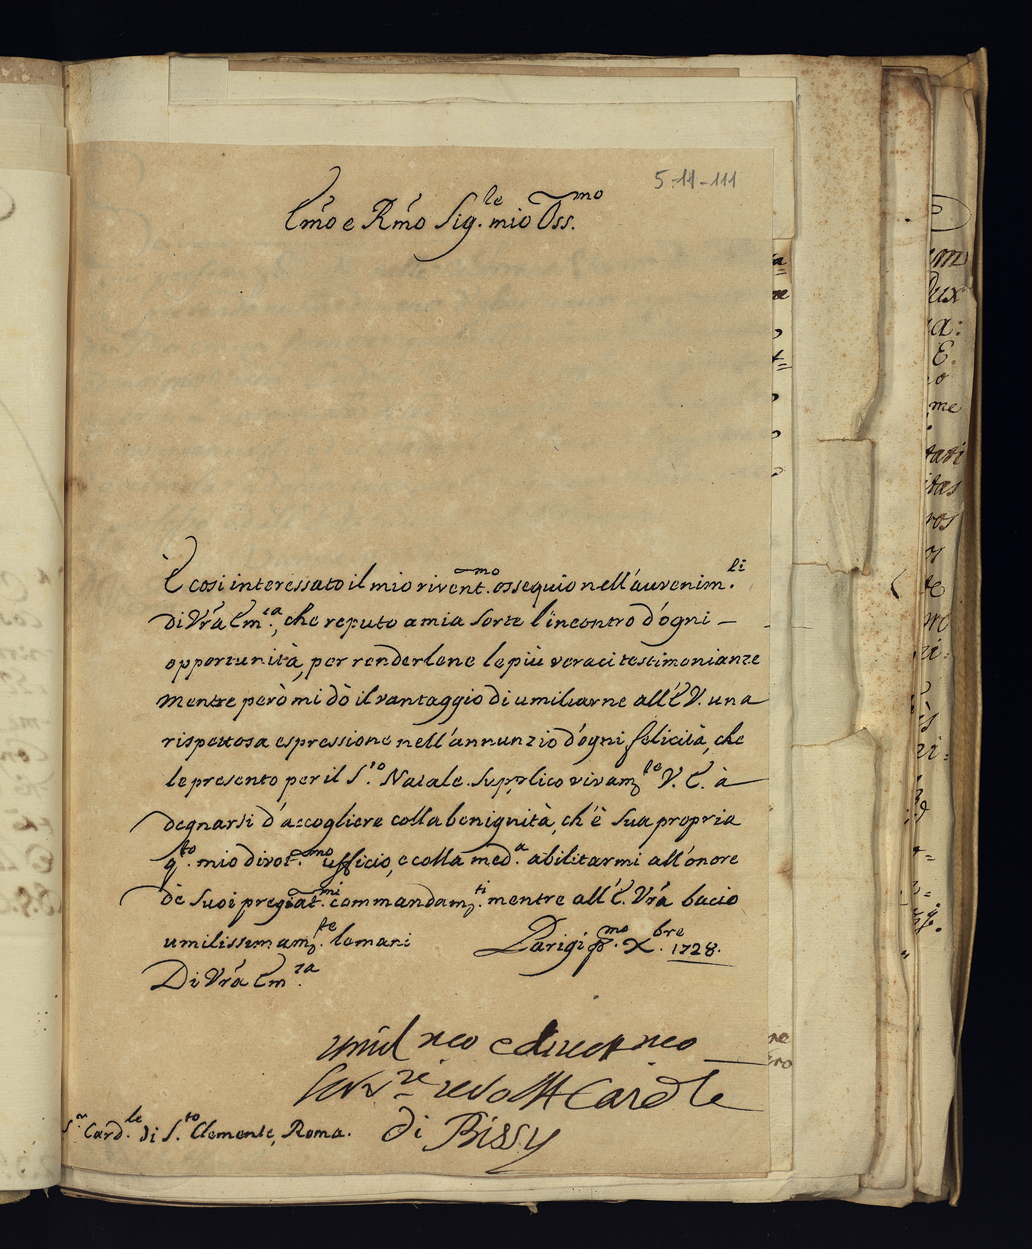 5-11-111
Em̃o e Rm̃o Sig.le mio Oss.mo
È cosi interessato il mio rivent.mo ossequio nell'auvenim.li
di Vr̃a Em.za, che reputo a mia sorte l'incontro d'ogni –
opportunità, per renderlene le più veraci testimonianze
Mentre però mi dò il vantaggio di umiliarne all'E.V. una
rispettosa espressione nell'annunzio d'ogni felicità, che
le presento per il S.to Natale. Supplico vivam.te V. E. à
degnarsi d'accogliere colla benignità, ch'è sua propria
q.to mio divot.mo ufficio, e colla med.a abilitarmi all'onore
dè suoi pregiat.mi commandam.ti mentre all'E. Vr̃a bacio
umilissimam.te le mani Parigi p.mo X.bre 1728.
Di Vr̃a Em.za
Card.le
di Bissy
S.r Card.le di S.to Clemente, Roma.